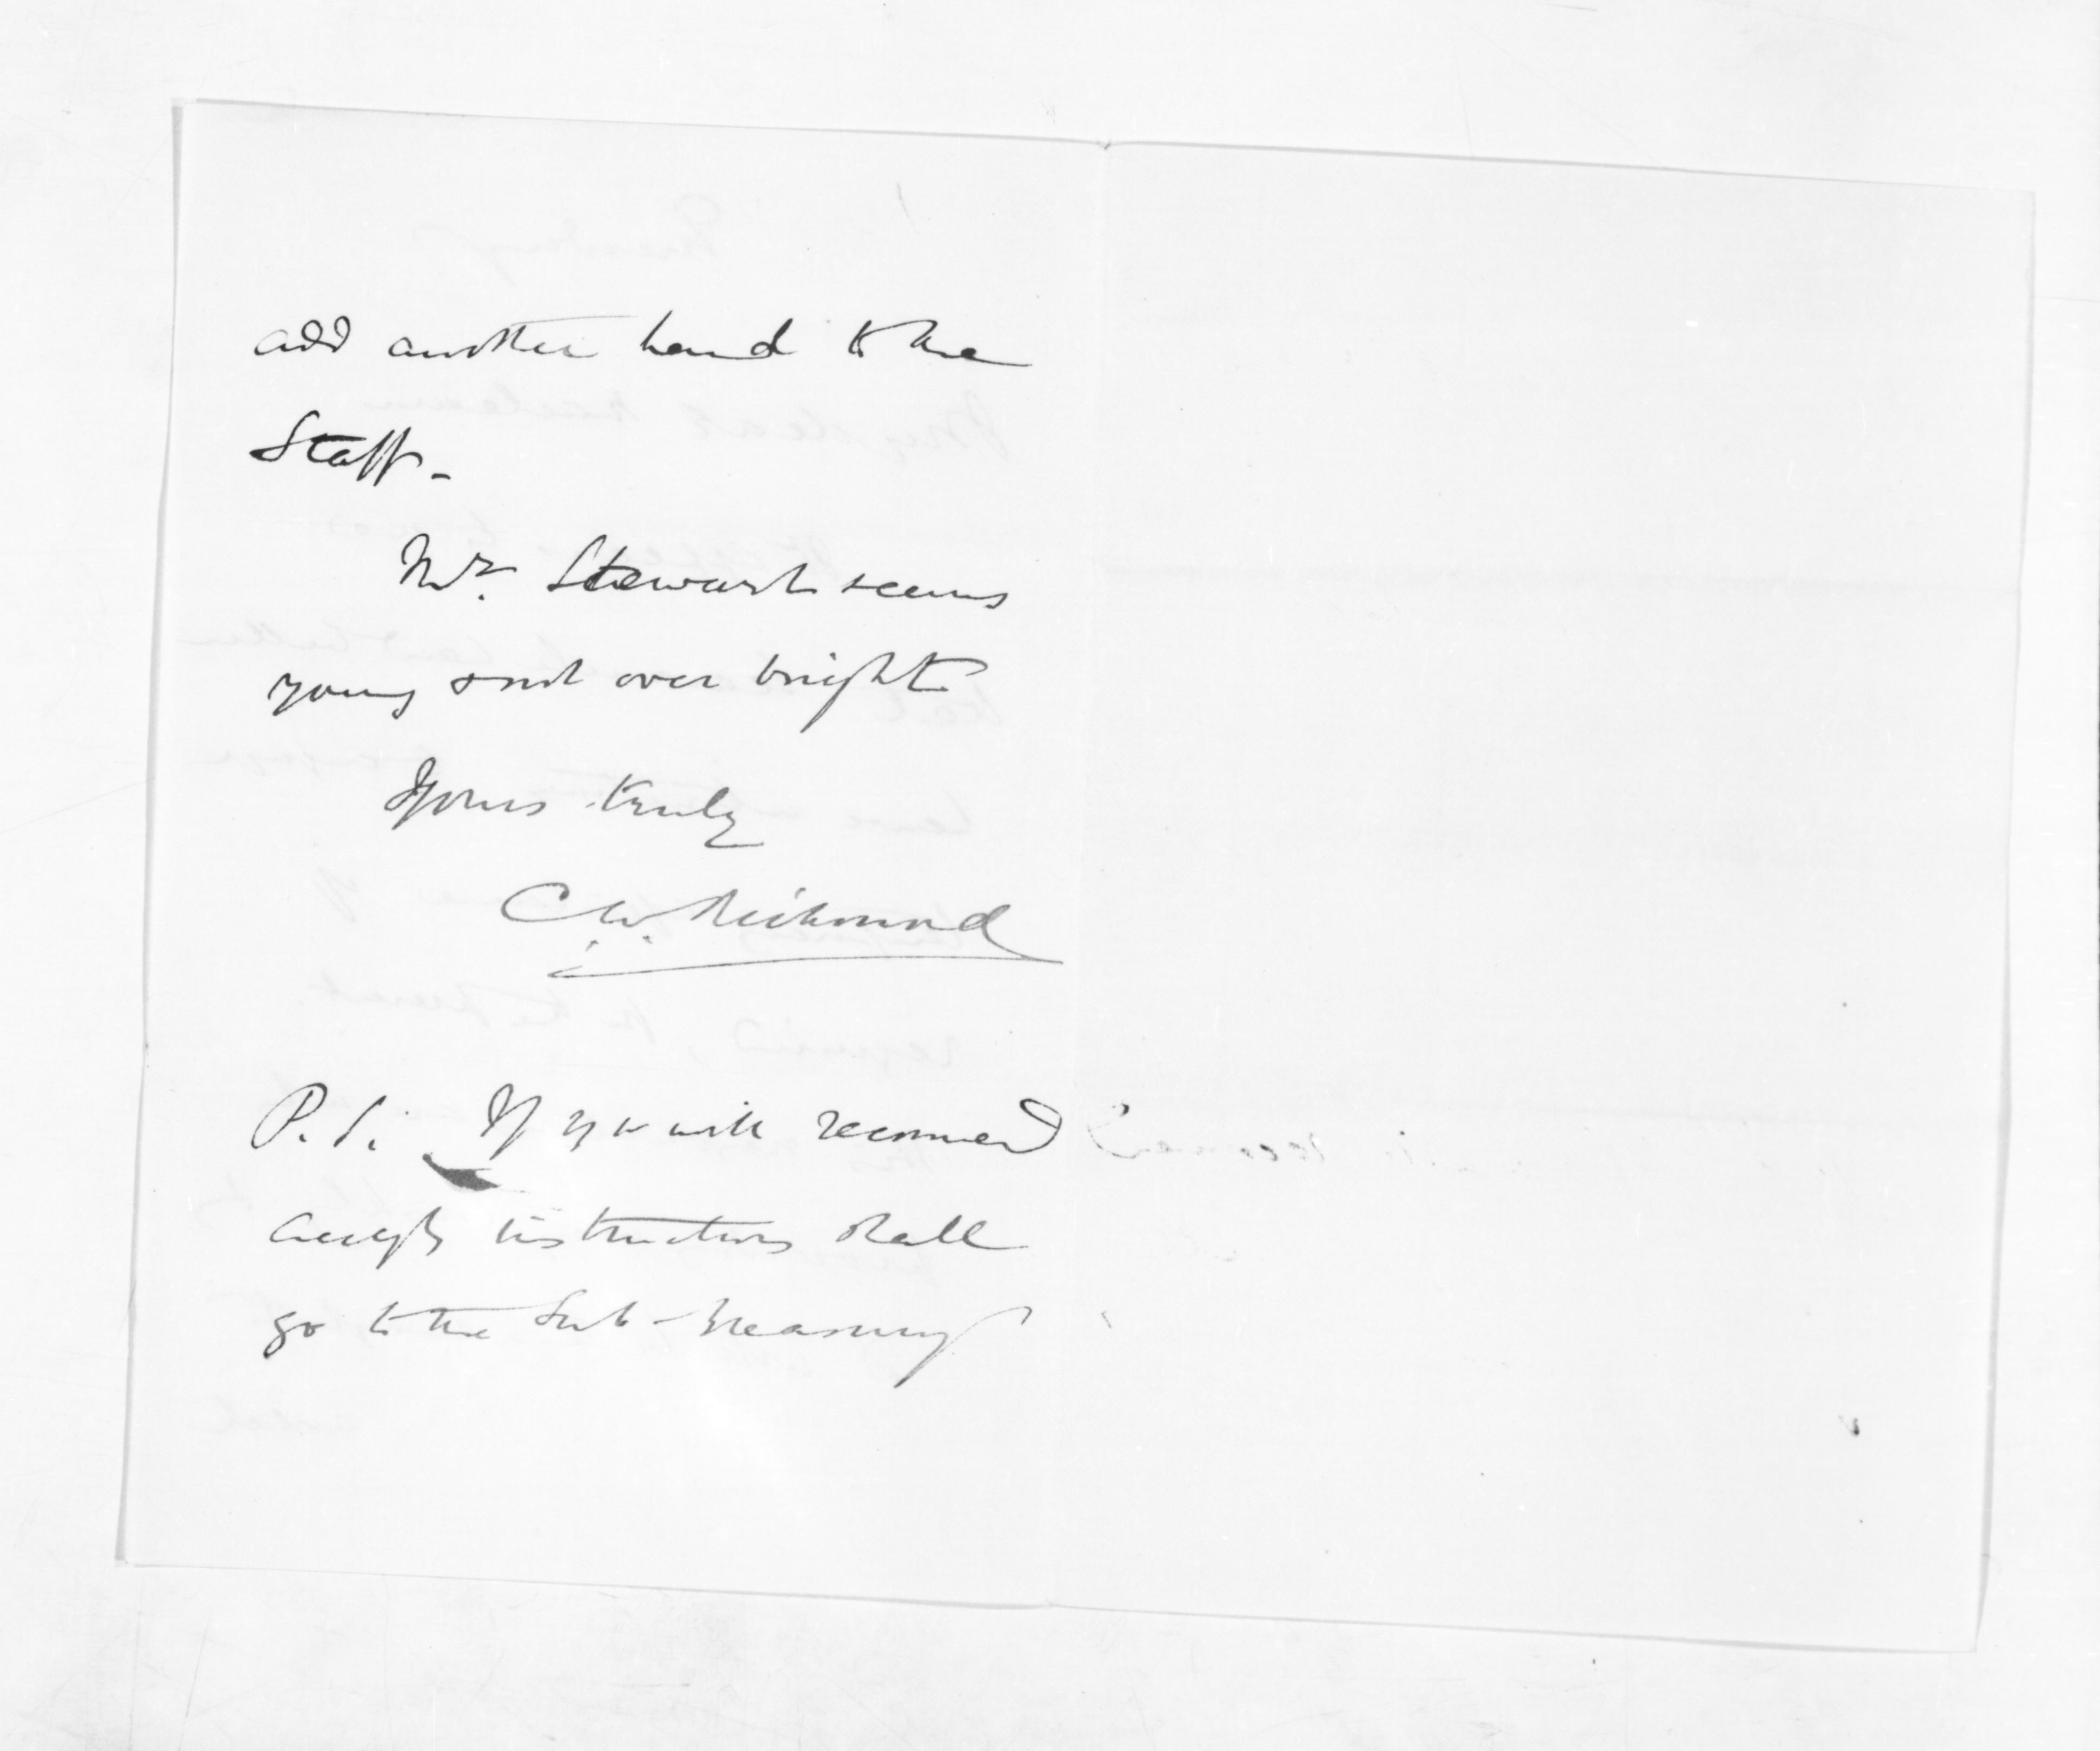 add another hand to the
Staff.
Mr. Stewart seems
young & not over bright
Yours truly
C.W. Richmond
P.S. If you will recommend
accgly instructions shall
go to the Sub-Treasury